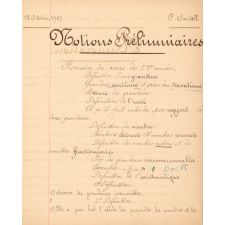 Octobre 1907
C. Vandell
Notions Préliminaires
Révision du cours de 2me année.
Définition d'une grandeur
Grandeurs continues et grandeurs discontinues
Mesure des grandeurs.
Définition de l'unité
Ce qu'il faut entendre par rapport de
deux grandeurs.
Définition du nombre
Nombres abstraits et nombres concrets
Définition du nombre entier et du
nombre fractionnaire
des grandeurs commensurables
Exemples
Définition de l'arithmétique
1e Définition
1º Science des grandeurs
2º Définition
Elle a pour but l'étude des propriétés des nombres et les